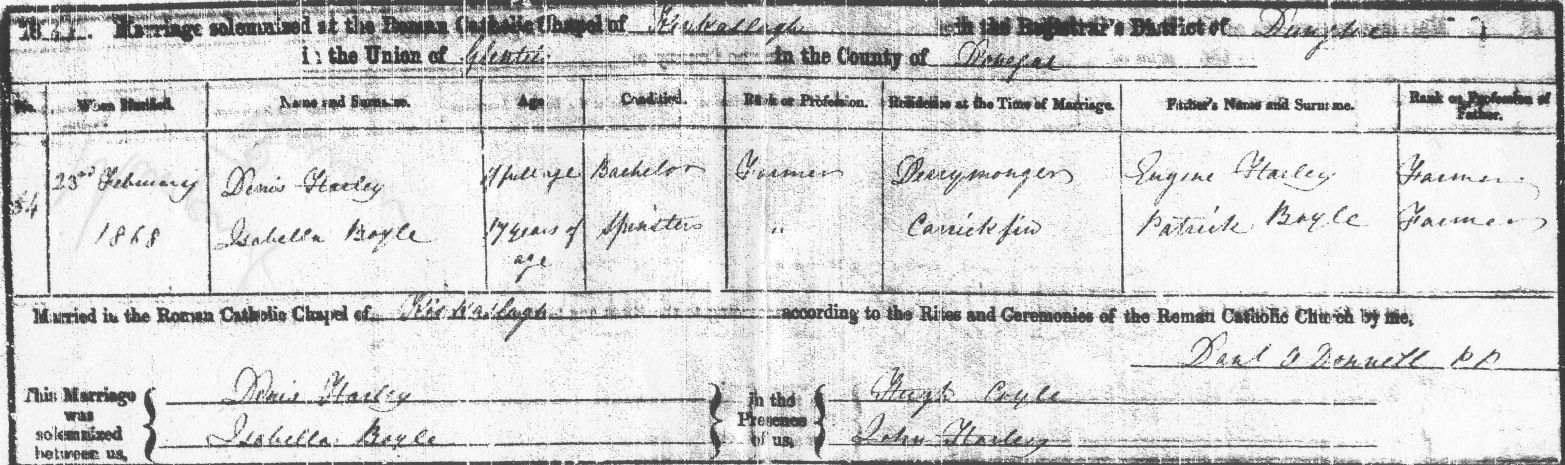 Marriage solemnized at the Roman Catholic Chapel of Kincasslagh in the Registrar's District of Dungloe
in the Union of Glenties in the County of Donegal
No. When Married. Name and Surname. Age Condition. Rank or Profession. Residence at the Time of Marriage. Father's Name and Surname. Rank or Profession of Father.
54 23rd February 1868 Denis Harley of full age Bachelor Farmer Derrymonger Eugene Harley Farmer
Isabella Boyle 17 years of age Spinster " Carrickfin Patrick Boyle Farmer
Married in the Roman Catholic Chapel of Kincasslagh according to the Rites and Ceremonies of the Roman Catholic Church by me,
Danl O'Donnell P.P
This Marriage was solemnized between us, Denis Harley
Isabella Boyle
in the Presence of us, Hugh Coyle
John Harley